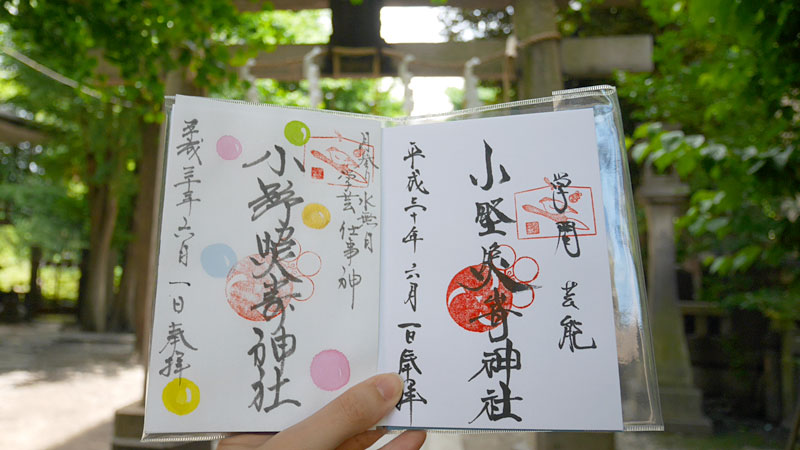 学問　芸能
小野照崎神社
平成三十年　六月一日　奉拝
月参り　水無月
学芸　仕事神
小野照崎神社
平成三十年　六月一日　奉拝